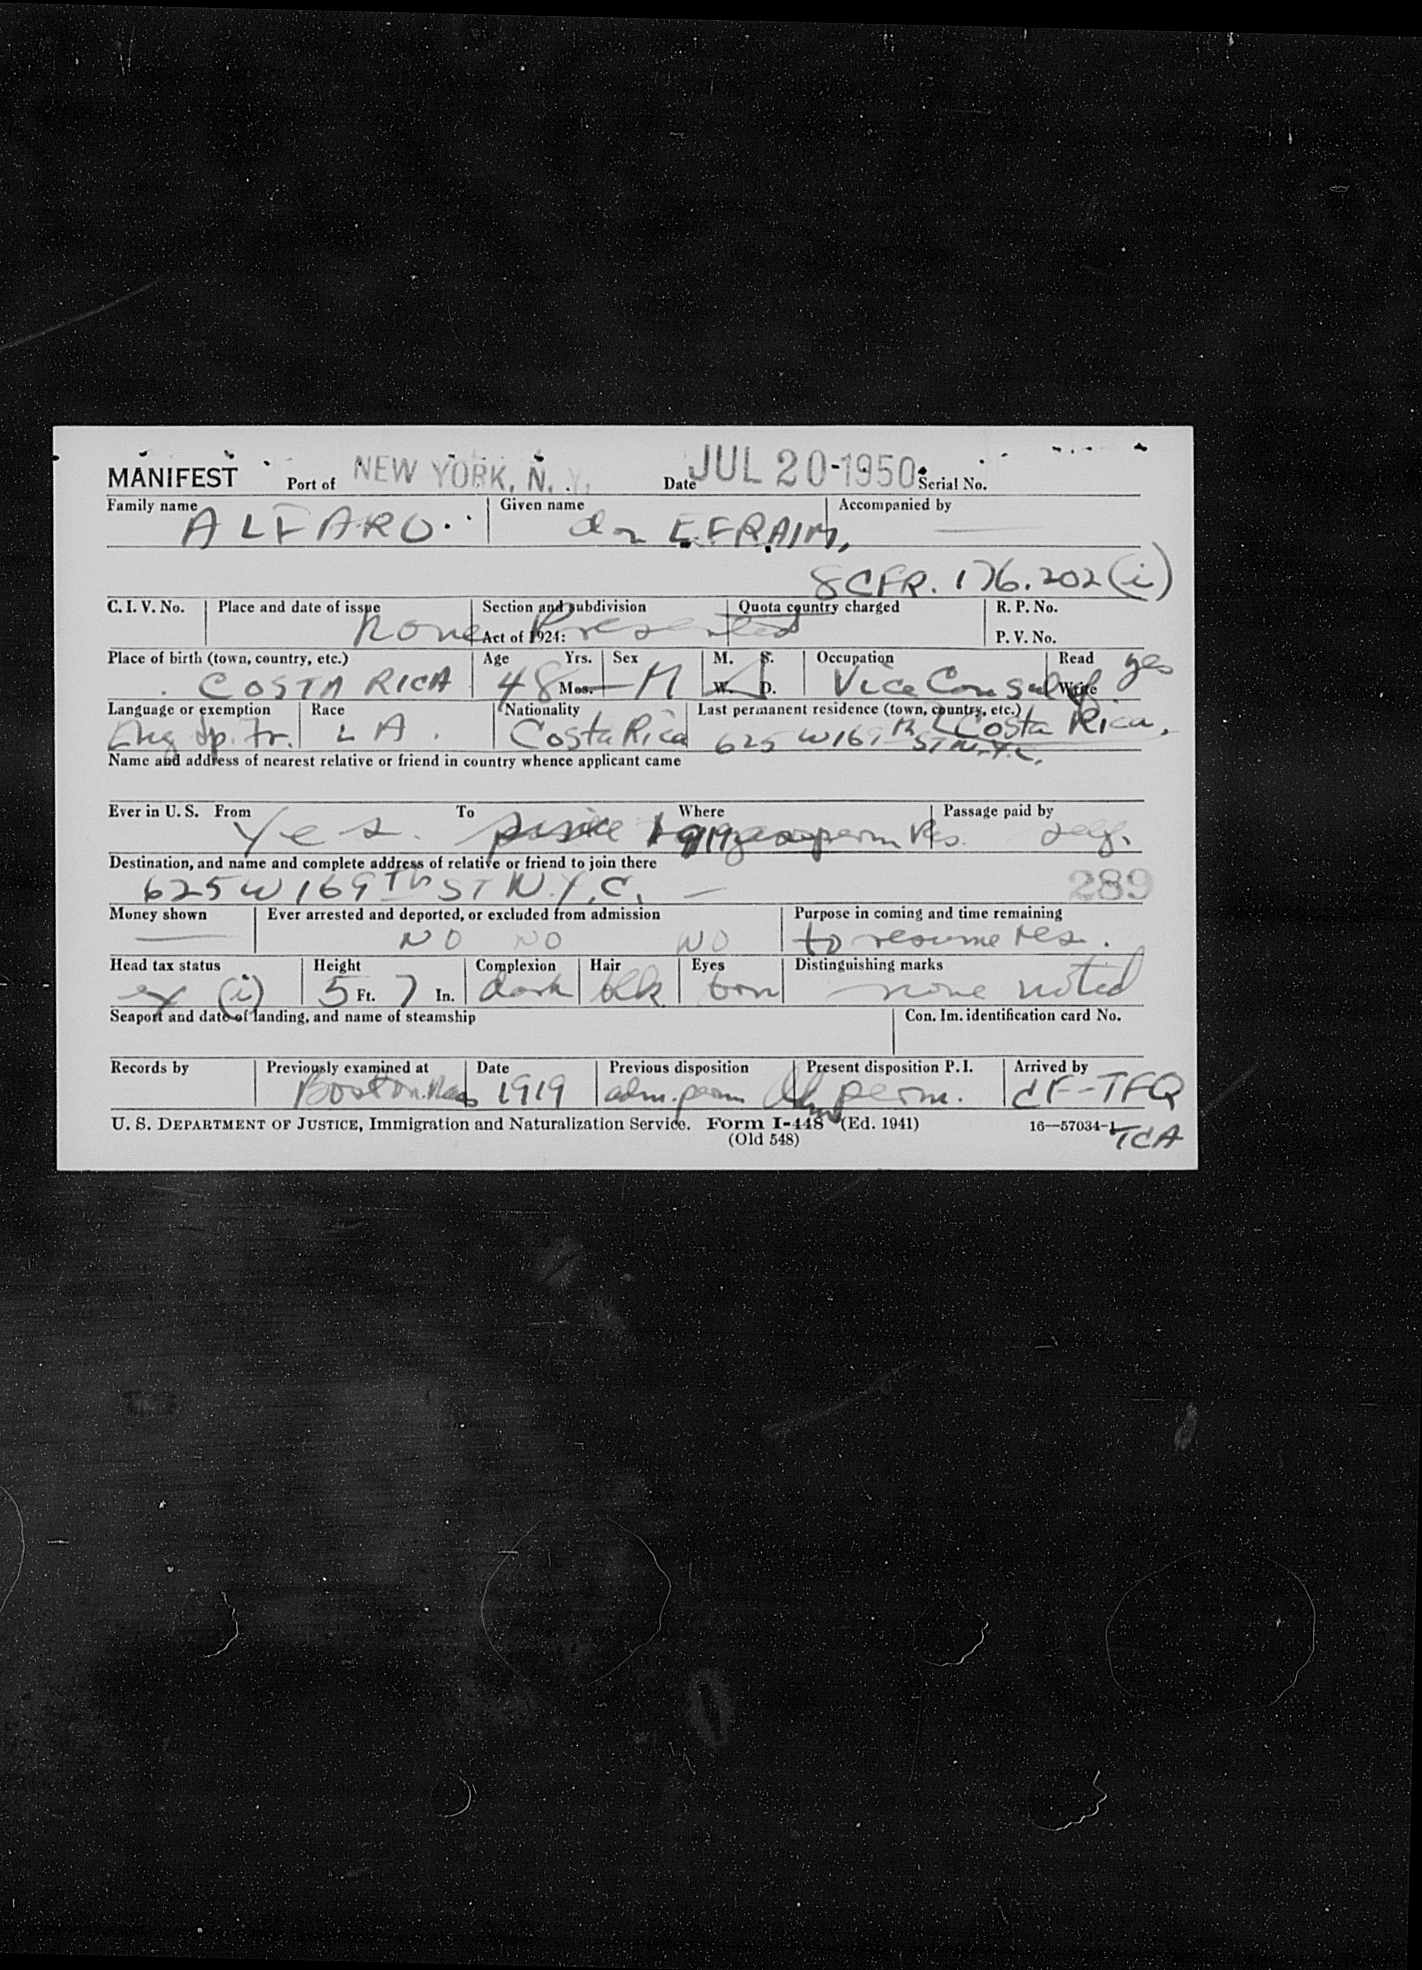 MANIFEST Port of NEW YORK, N. Y. Date JUL 20-1950 Serial No.
Family name Given name Accompanied by
ALFARO don EFRAIM, —
8CFR. 176.202(i)
C. I. V. No. Place and date of issue Section and subdivision Quota country charged R. P. No.
None Presented
Act of 1924: P. V. No.
Place of birth (town, country, etc.) Age Yrs. Sex M. S. Occupation Read yes
COSTA RICA 48 Mos. — M W. D. Vice Consul of Write
Language or exemption Race Nationality Last permanent residence (town, country, etc.) Costa Rica.
Eng Sp. Fr. L A. Costa Rica 625 W169th ST N.Y.C.
Name and address of nearest relative or friend in country whence applicant came
Ever in U. S. From To Where Passage paid by
Yes. since 1919 perm Res. self.
Destination, and name and complete address of relative or friend to join there
625 W 169Th ST N.Y.C. — 289
Money shown Ever arrested and deported, or excluded from admission Purpose in coming and time remaining
— NO NO NO to resume res.
Head tax status Height Complexion Hair Eyes Distinguishing marks
ex (i) 5 Ft. 7 In. dark blk brn none noted
Seaport and date of landing, and name of steamship Con. Im. identification card No.
Records by Previously examined at Date Previous disposition Present disposition P. I. Arrived by
Boston.Mass 1919 adm. perm Adm perm. CF-TFQ
U. S. DEPARTMENT OF JUSTICE, Immigration and Naturalization Service. Form I-448 (Ed. 1941) 16—57034-1 TCA
(Old 548)